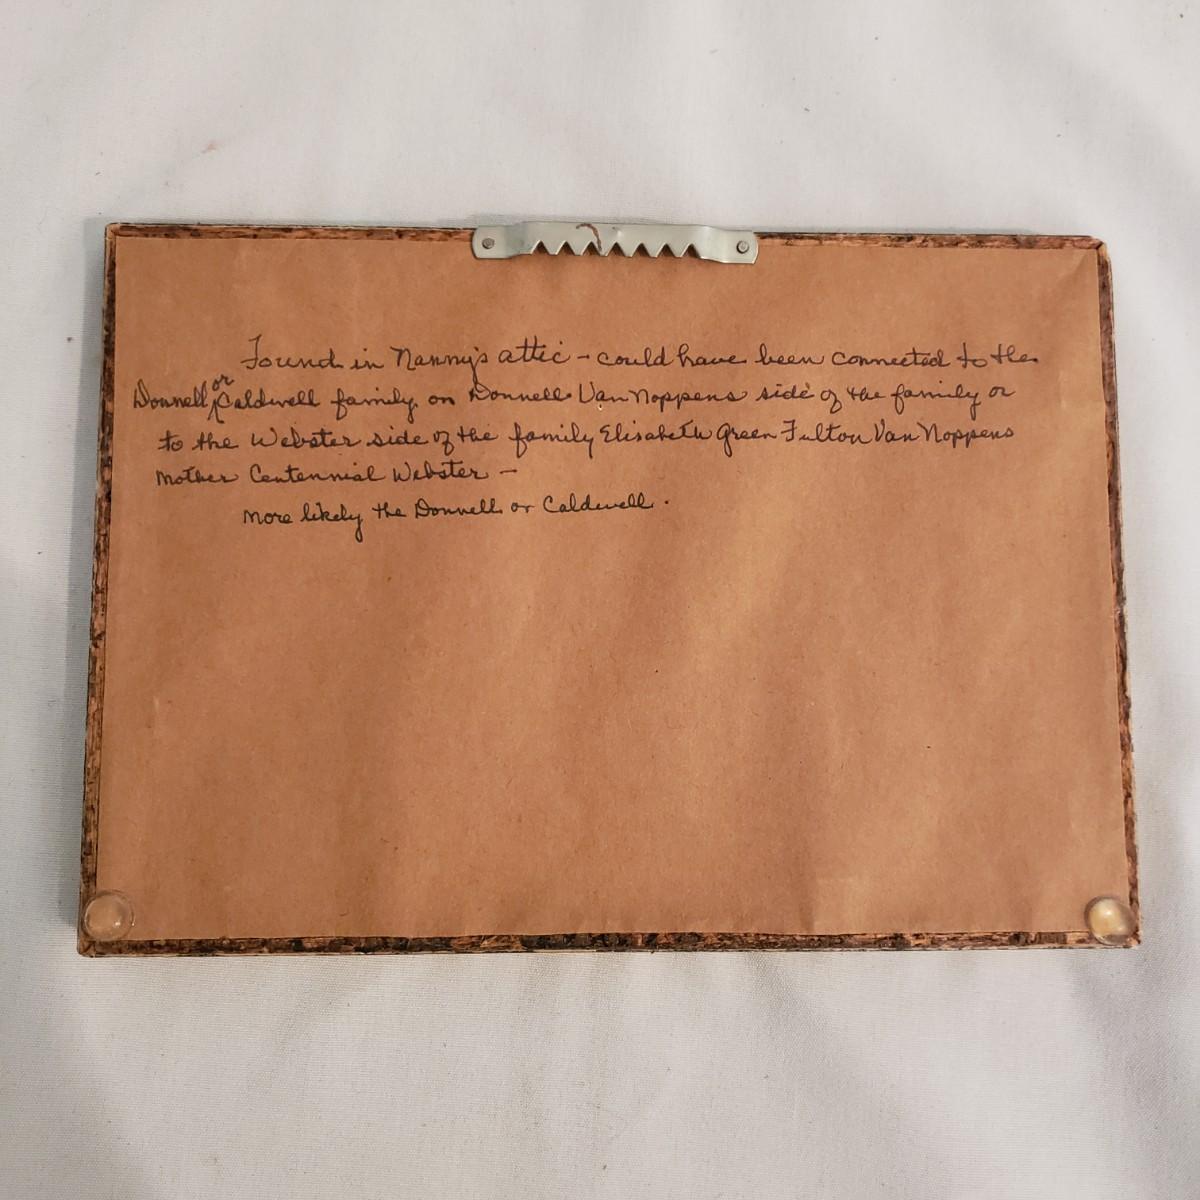 Found in Nanny's attic - could have been connected to the
Donnell or Caldwell family on Donnell Van Noppens side of the family or
to the Webster side of the family Elisabeth Green Fulton Van Noppens
Mother Centennial Webster -
More likely the Donnell or Caldwell.